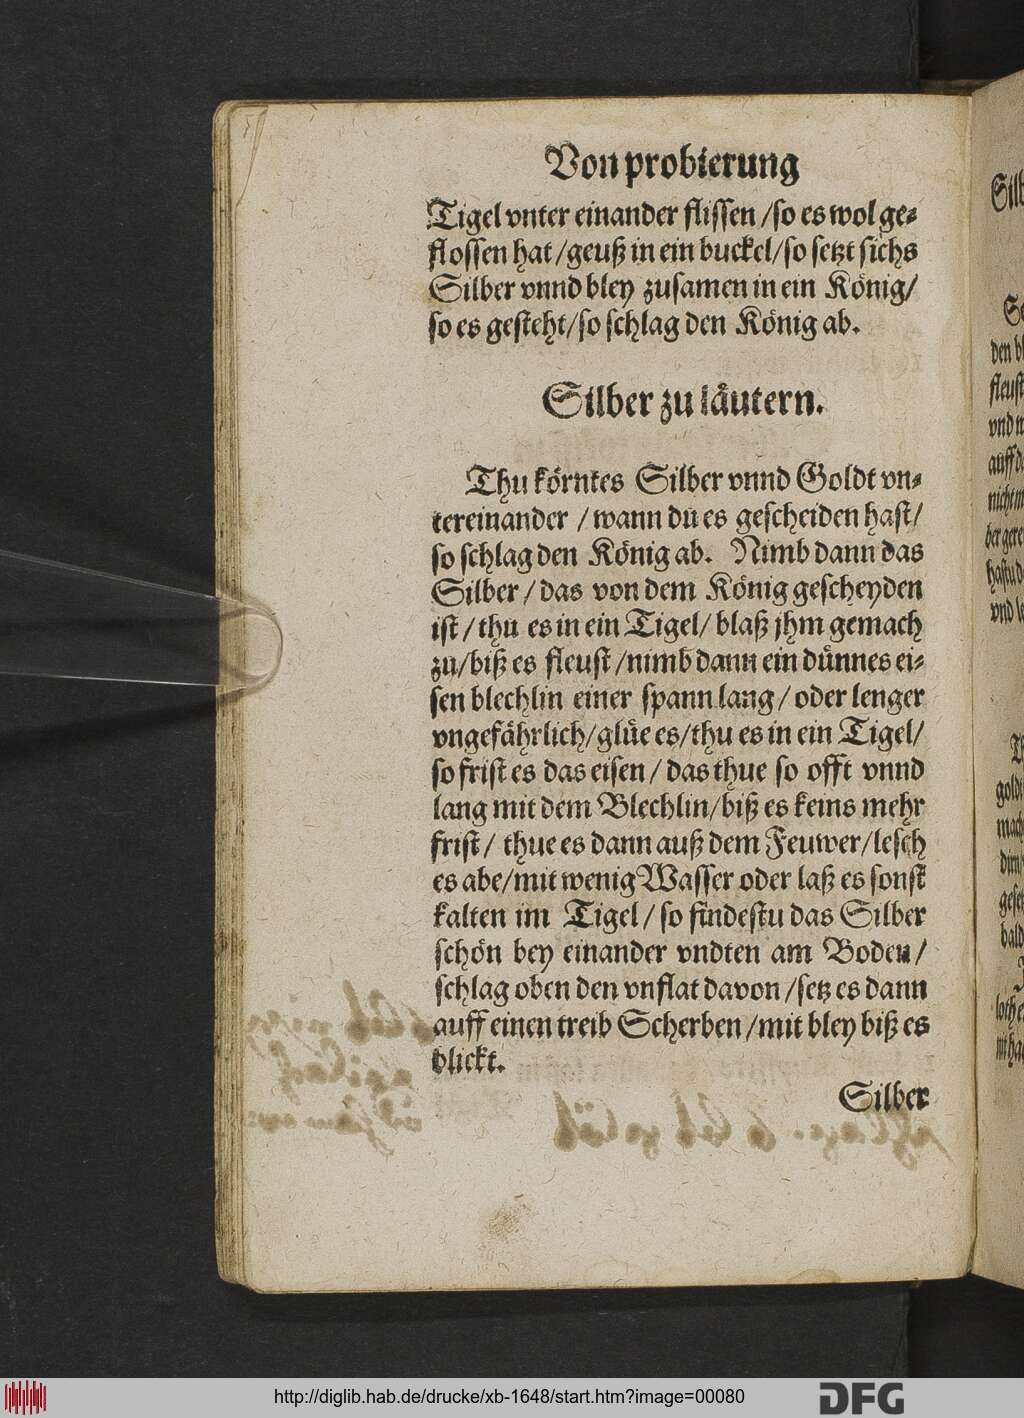 Von probierung
Tigel vnter einander flissen / so es wol ge-
flossen hat / geuß in ein buckel / so setzt sichs
Silber vnnd bley zusamen in ein König /
so es gesteht / so schlag den König ab.
Silber zu läutern.
Thu körntes Silber vnnd Goldt vn-
tereinander / wann du es gescheiden hast /
so schlag den König ab. Nimb dann das
Silber / das von dem König gescheyden
ist / thu es in ein Tigel / blaß jhm gemach
zu / biß es fleust / nimb dann ein dünnes ei-
sen blechlin einer spann lang / oder lenger
vngefährlich / glüe es / thu es in ein Tigel /
so frist es das eisen / das thue so offt vnnd
lang mit dem Blechlin / biß es keins mehr
frist / thue es dann auß dem Feuwer / lesch
es abe / mit wenig Wasser oder laß es sonst
kalten im Tigel / so findestu das Silber
schön bey einander vndten am Boden /
schlag oben den vnflat davon / setz es dann
auff einen treib Scherben / mit bley biß es
blickt.
Silber
http://diglib.hab.de/drucke/xb-1648/start.htm?image=00080
DFG